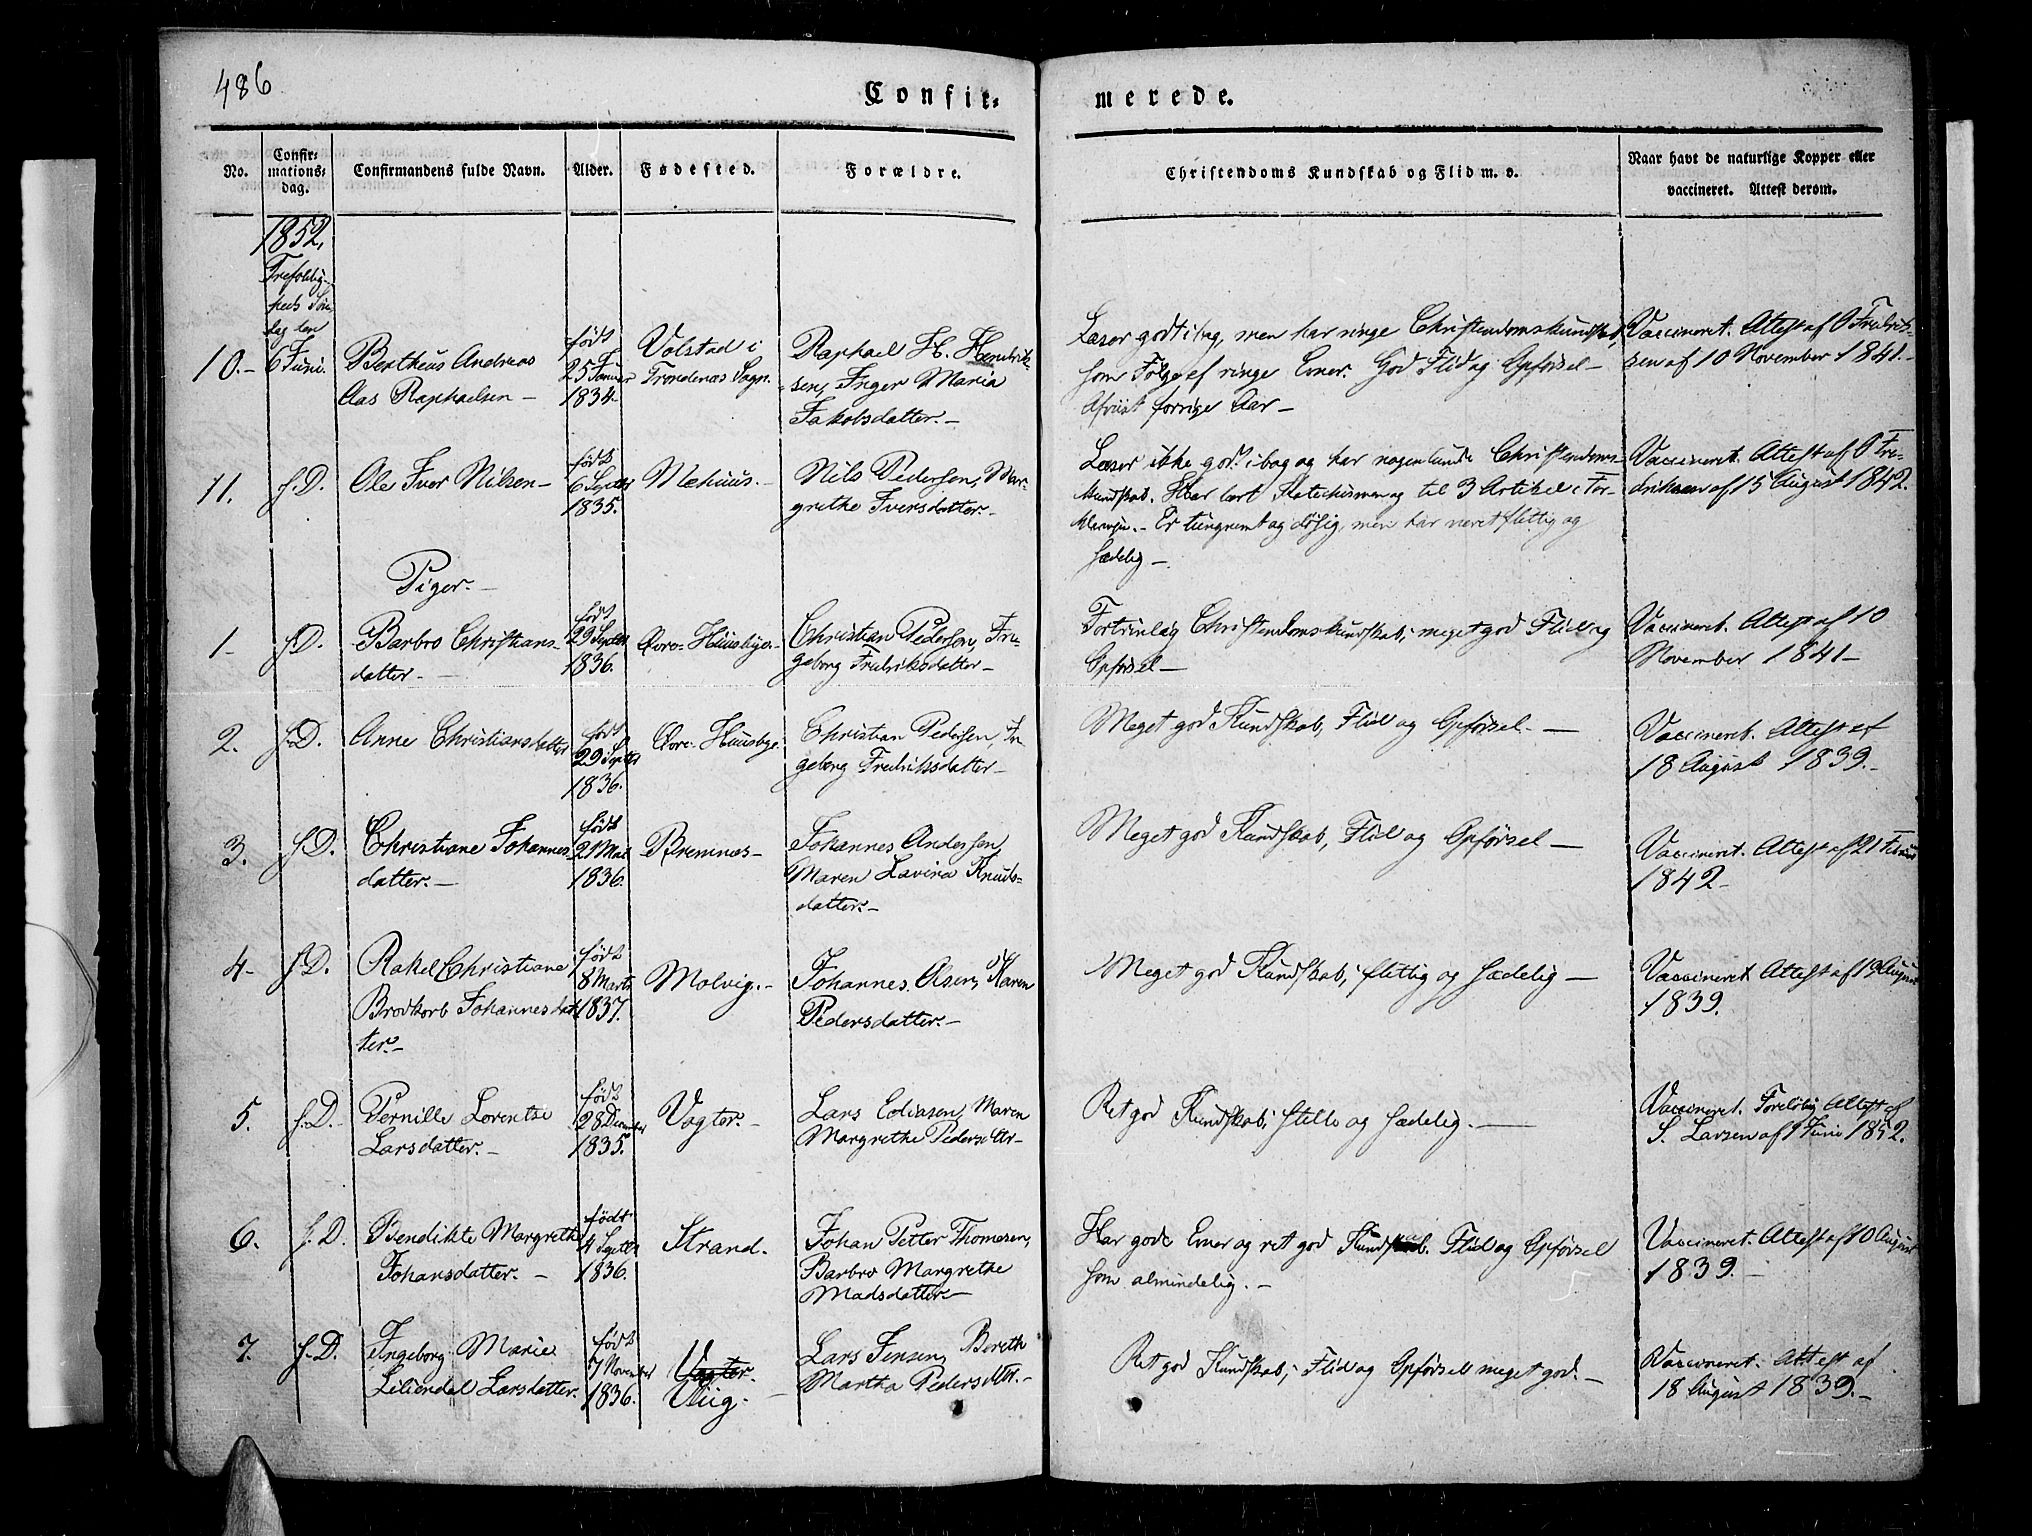 486
Confir-
merede.
No.
Confir-
mations-
dag.
Confirmandens fulde Navn.
Alder.
Fødested.
Forældre.
Christendoms Kundskab og Flid m. v.
Naar havt de naturlige Kopper eller
vaccineret. Attest derom.
1852,
Trefoldig-
heds Søn
dag den
10.- 6 Juni.
Bertheus Andreas
Aas Raphaelsen -
født
25 Januar
1834
Volstad i
Trondenæs Sogn.
Raphael H. Hendrik-
sen, Inger Maria
Jakobsdatter. -
Læser godt i bog, men har ringe Christendomskundskab,
som Følge af ringe Evner. God Flid og Opførsel -
Afviist forrige Aar -
Vaccineret. Attest af O Fredrik-
sen af 10 November 1841. -
11. s. D.
Ole Iver Nilsen -
født
6 Septbr
1835.
Mæhuus. -
Nils Pedersen, Mar-
grethe Iversdatter. -
Læser ikke god i bog og har nogenlunde Christendoms-
kundskab. Har lært Katechismen og til 3 Artikel i For-
klaringen. - Er tungnemt og døsig, men har været flittig og
sædelig -
Vaccineret. Attest af O Fre-
driksen af 15 August 1842.
Piger. -
1- s. D.
Barbro Christians-
datter. -
født
29 Septbr
1836.
Øvre-Huusbye. -
Christian Pedersen, In-
geborg Fredriksdatter -
Fortrinlig Christendomskundskab; meget god Flid og
Opførsel -
Vaccineret. Attest af 10
November 1841 -
2. s. D.
Anne Christiansdatter
født
29 Septbr
1836.
Øvre-Huusbye.
Christian Pedersen, In-
geborg Fredriksdatter -
Meget god Kundskab, Flid og Opførsel. -
Vaccineret. Attest af
18 August 1839. -
3. s. D.
Christiane Johannes-
datter. -
født
21 Mai
1836.
Bremnæs -
Johannes Andersen,
Maren Lavina Knuds-
datter. -
Meget god Kundskab, Flid og Opførsel -
Vaccineret. Attest af 21 Februar
1842 -
4- s. D.
Rakel Christiane
Brodkorb Johannesdat
ter. -
født
8 Marts
1837.
Molvig. -
Johannes Olsen, Karen
Pedersdatter. -
Meget god Kundskab; flittig og sædelig -
Vaccineret Attest af 19 August
1839.
5. s. D.
Pernille Lorentse
Larsdatter. -
født
28 December
1835.
Vagter. -
Lars Eliasen, Maren
Margrethe Pedersdttr -
Ret god Kundskab; stille og sædelig. -
Vaccineret. Foreløbig Attest af
S. Larsen af 1 Juni 1852.
6. s. D.
Bendikte Margrethe
Johansdatter. -
født
4 Septbr
1836.
Strand.
Johan Petter Thomesen,
Barbro Margrethe
Madsdatter -
Har gode Evner og ret god Kundskab. Flid og Opførsel
som almindelig. -
Vaccineret. Attest af 10 August
1839. -
7. s. D.
Ingeborg Marie
Liliendal Larsdatter.
født
7 November
1836.
Vagter.
Viig. -
Lars Jensen, Bereth
Martha Pedersdttr. -
Ret god Kundskab; Flid og Opførsel meget god. -
Vaccineret. Attest af
18 August 1839. -